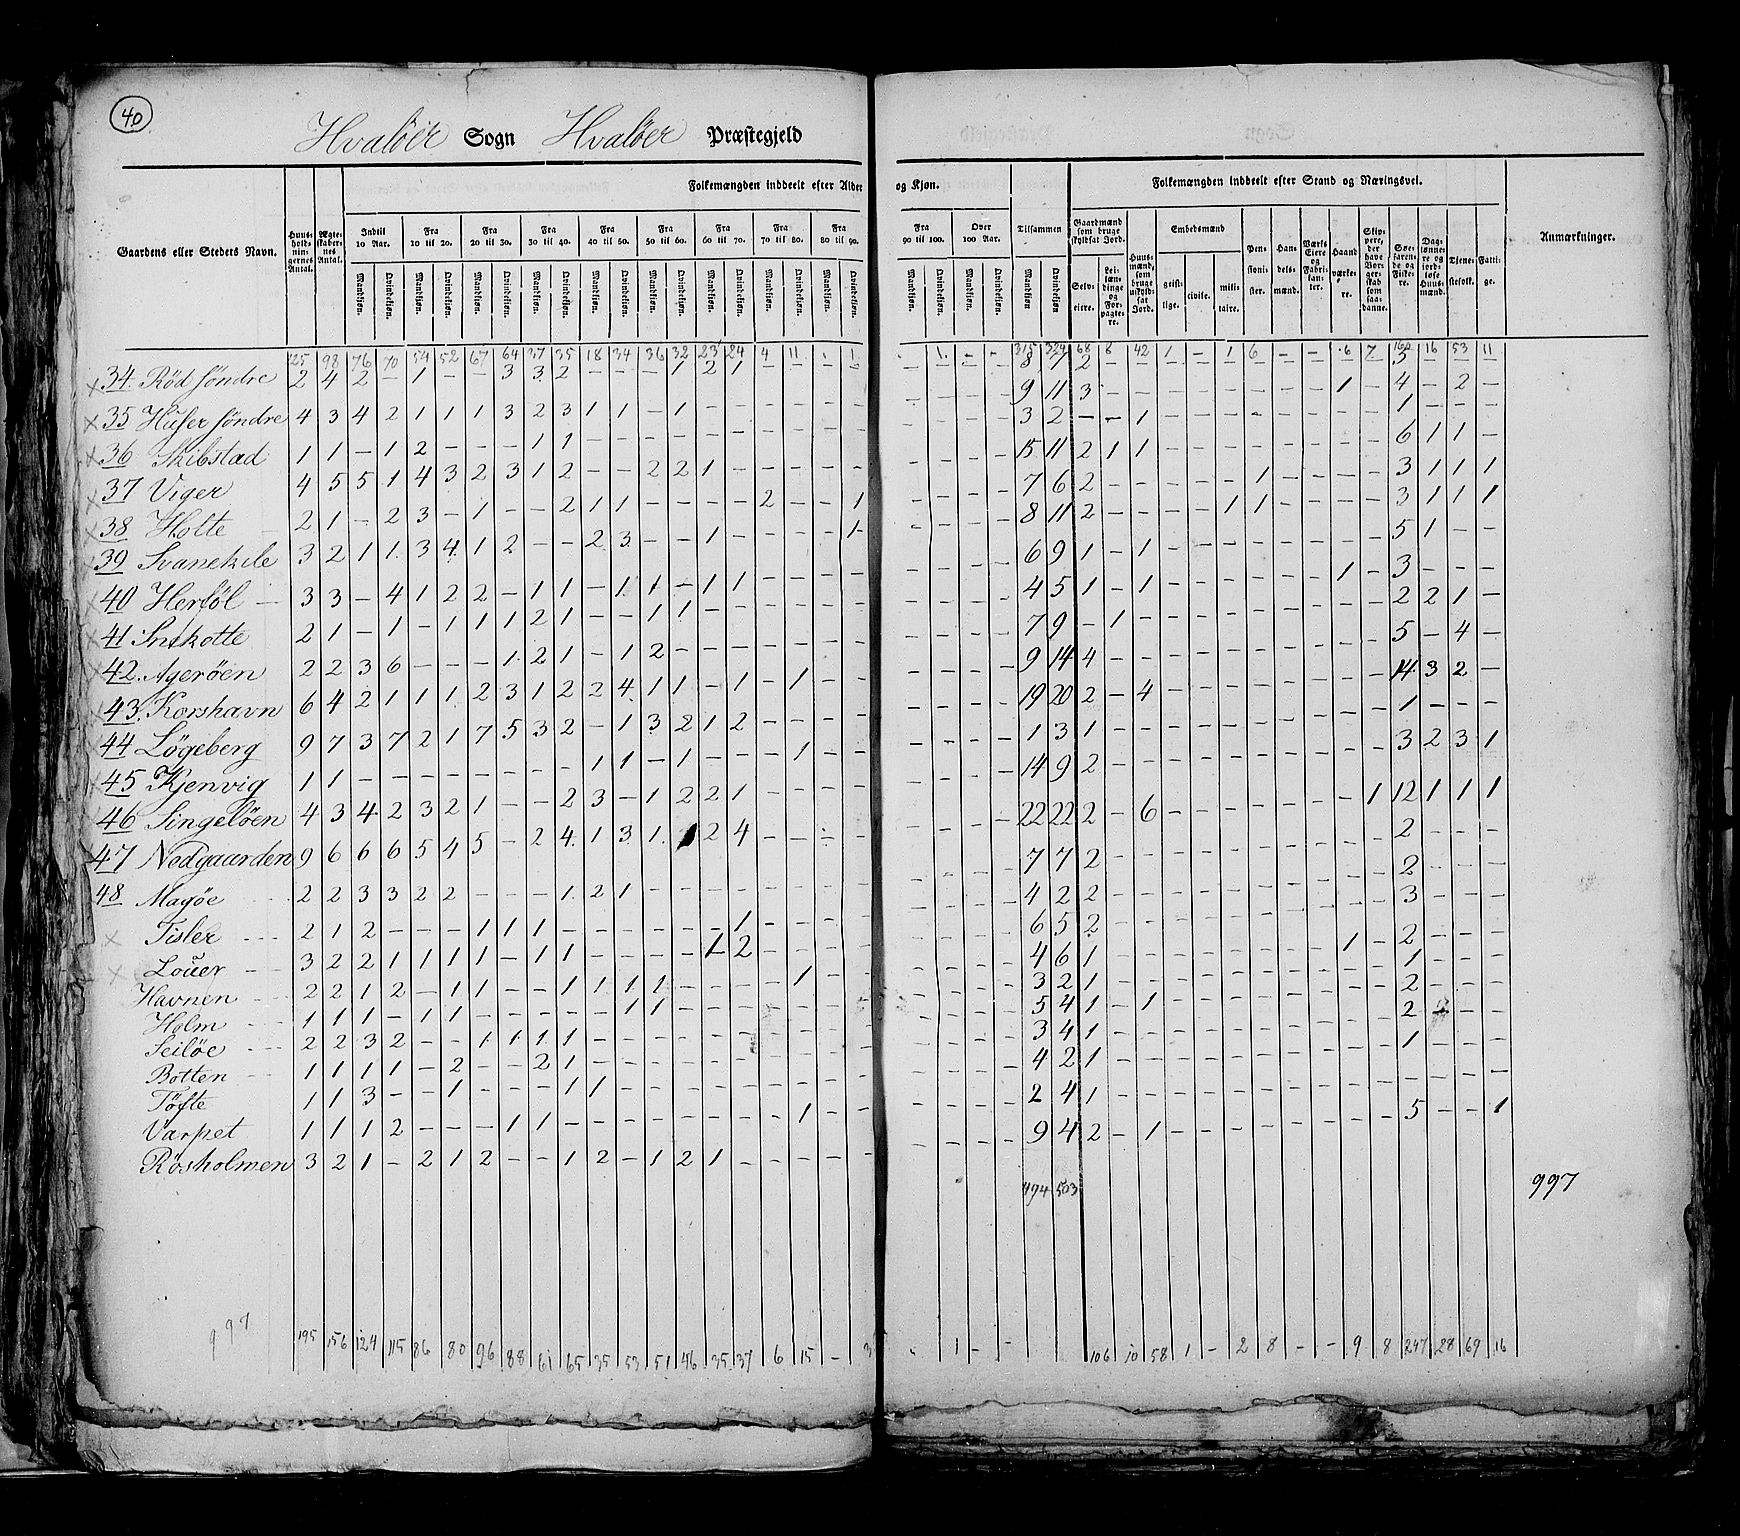 40
Hvalöer Sogn Hvalöer Præstegjeld
Folkemængden inddeelt efter Alder og Kjøn.
Folkemængden inddeelt efter Stand og Næringsvei.
Gaardens eller Steders Navn.
Huusholdningernes Antal.
Ægteskabernes Antal.
Indtil 10 Aar.
Fra 10 til 20.
Fra 20 til 30.
Fra 30 til 40.
Fra 40 til 50.
Fra 50 til 60.
Fra 60 til 70.
Fra 70 til 80.
Fra 80 til 90.
Fra 90 til 100.
Over 100 Aar.
Tilsammen
Mandkjøn. Qvindekjøn.
Gaardmænd som bruge skyldsat Jord.
Selveiere.
Leilændinge og Forpagtere.
Huusmænd, som bruge uskyldsat Jord.
Embedsmænd
geistlige. civile. militaire.
Pensionister.
Handelsmænd.
Værks Eiere og Fabrikanter.
Haandværkere.
Skippere, der have Borgerskab som saadanne.
Søefarende og Fiskere.
Daglønnere og jordløse Huusmænd.
Tjenestefolk.
Fattige.
Anmærkninger.
125 98 76 70 54 52 67 64 37 35 18 34 36 32 23 24 4 11 - 1 - 1 - - 315 329 68 8 42 1 - 1 6 - - 6 7 160 16 53 11
34. Röd söndre 2 4 2 - 1 - - 3 3 2 - - - 1 2 1 - - - - 8 7 2
35 Huser söndre 4 3 4 2 1 1 1 3 2 3 1 1 - 1 - - - - - - 9 11 3 1 - 4 - 2 -
36 Skibstad 1 1 - 1 2 - - - 1 1 - - - - - - - - - - 3 2 - - 1 1 - - -
37 Viger 4 5 5 1 4 3 2 3 1 2 - - 2 2 1 - - - - - 15 11 2 1 1 6 1 1 -
38 Holte 2 1 - 2 3 - 1 - - 2 1 1 - - - - 2 - - 1 7 6 2 1 3 1 1 1
39 Svanekile 3 2 1 1 3 4 1 2 - - 2 3 - - 1 - - - - 1 8 11 2 1 1 3 1 1 1
40 Herföl 3 3 - 4 1 2 2 - 1 1 - 1 1 - 1 1 - - - - 6 9 1 - 1 5 1 - -
41 Snekotte 2 1 - 1 - 1 1 1 2 1 - - 1 1 - - - - - - 4 5 1 - 1 1 - 3 - - -
42. Ageröen 2 2 3 6 - - - 1 2 1 - 1 2 - - - - - - - 7 9 - 1 2 2 1 -
43. Korshavn 6 4 2 1 1 1 2 3 1 2 2 4 1 1 - 1 - 1 - - 9 14 4 5 - 4 -
44 Lögeberg 9 7 3 7 2 1 7 5 3 2 - 1 3 2 1 2 - - - - 19 20 2 - 4 14 3 2 -
45 Kjenvig 1 1 - - - - - - - - 1 1 - 1 - - - 1 - - 1 3 1 1 - - -
46 Singelöen 4 3 4 2 3 2 1 - - 2 3 - 1 2 2 1 - - - - 14 9 2 3 2 3 1
47 Nedgaarden 9 6 6 6 5 4 5 - 2 4 1 3 1 1 2 4 - - - - 22 22 2 - 6 1 12 1 1 1
48 Magöe 2 2 3 3 2 2 - - - 1 2 1 - - - - - - - - 7 7 2 2 - - -
Tisler 2 1 2 - - - 1 1 1 - - - - - - 1 - - - - 4 2 2 2 - - -
Loüer 3 2 2 1 1 1 1 - 1 1 - - - - 1 2 - - - - 6 5 2 3 - - -
Havnen 2 2 1 2 - 1 1 - - 1 1 1 1 - - - - 1 - - 4 6 1 1 - 2 - - -
Holm 1 1 1 - 1 1 - - - - - 1 1 - - - - - - - 3 2 1 1 - - -
Seilöe 2 2 3 2 - - 1 1 1 1 - - - - - - - - - - 5 4 1 - 1 2 - - -
Botten 1 1 1 1 - 2 - - 2 1 - - - - - - - - - - 3 4 1 2 - -
Töfte 1 1 3 - - 1 - - - 1 1 - - - - - - - - - 4 2 1 1 - - -
Varpet 1 1 1 2 - - - 1 1 - - - - - - - - 1 - - 2 4 1
Rösholmen 3 2 1 - 2 1 2 - - 1 2 - 1 2 1 - - - - - 9 4 2 - 1 5 - - 1
494 503 997
997
195 156 124 115 86 80 96 88 61 65 35 53 51 46 35 37 6 15 - 3 - 1 - - 106 10 58 1 - 2 8 - - 9 8 247 28 69 16